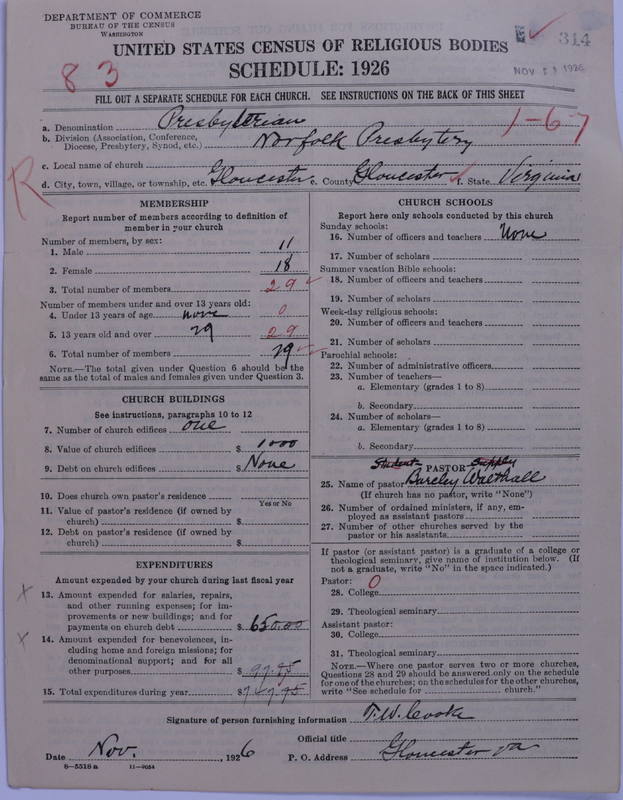 DEPARTMENT OF COMMERCE
BUREAU OF THE CENSUS
WASHINGTON
314
UNITED STATES CENSUS OF RELIGIOUS BODIES
SCHEDULE: 1926
NOV 1926
83
FILL OUT A SEPARATE SCHEDULE FOR EACH CHURCH. SEE INSTRUCTIONS ON THE BACK OF THIS SHEET
1-67
a. Denomination Presbyterian
b. Division (Association, Conference, Diocese, Presbytery, Synod, etc.) Norfolk Presbytery
c. Local name of church
R
d. City, town, village, or township, etc. Gloucester e. County Gloucester f. State Virginia
MEMBERSHIP
Report number of members according to definition of
member in your church
Number of members, by sex:
1. Male 11
2. Female 18
3. Total number of members 29
Number of members under and over 13 years old:
4. Under 13 years of age none 0
5. 13 years old and over 29 29
6. Total number of members 29
NOTE.—The total given under Question 6 should be the
same as the total of males and females given under Question 3.
CHURCH BUILDINGS
See instructions, paragraphs 10 to 12
7. Number of church edifices one
8. Value of church edifices $ 1000
9. Debt on church edifices $ None
10. Does church own pastor's residence
Yes or No
11. Value of pastor's residence (if owned by
church) $
12. Debt on pastor's residence (if owned by
church) $
EXPENDITURES
Amount expended by your church during last fiscal year
x 13. Amount expended for salaries, repairs,
and other running expenses; for im-
provements or new buildings; and for
payments on church debt $ 650.00
x 14. Amount expended for benevolences, in-
cluding home and foreign missions; for
denominational support; and for all
other purposes $ 97.75
15. Total expenditures during year $ 747.75
CHURCH SCHOOLS
Report here only schools conducted by this church
Sunday schools:
16. Number of officers and teachers None
17. Number of scholars
Summer vacation Bible schools:
18. Number of officers and teachers
19. Number of scholars
Week-day religious schools:
20. Number of officers and teachers
21. Number of scholars
Parochial schools:
22. Number of administrative officers
23. Number of teachers—
a. Elementary (grades 1 to 8)
b. Secondary
24. Number of scholars—
a. Elementary (grades 1 to 8)
b. Secondary
Student PASTOR Supply
25. Name of pastor Barcley Walthall
(If church has no pastor, write "None")
26. Number of ordained ministers, if any, em-
ployed as assistant pastors
27. Number of other churches served by the
pastor or his assistants
If pastor (or assistant pastor) is a graduate of a college or
theological seminary, give name of institution below. (If
not a graduate, write "No" in the space indicated.)
Pastor: 0
28. College
29. Theological seminary
Assistant pastor:
30. College
31. Theological seminary
NOTE.—Where one pastor serves two or more churches,
Questions 28 and 29 should be answered only on the schedule
for one of the churches; on the schedules for the other churches,
write "See schedule for church."
Signature of person furnishing information T.W. Cooke
Official title
Date Nov. , 1926 P. O. Address Gloucester Va
8—5518 a 11—9054